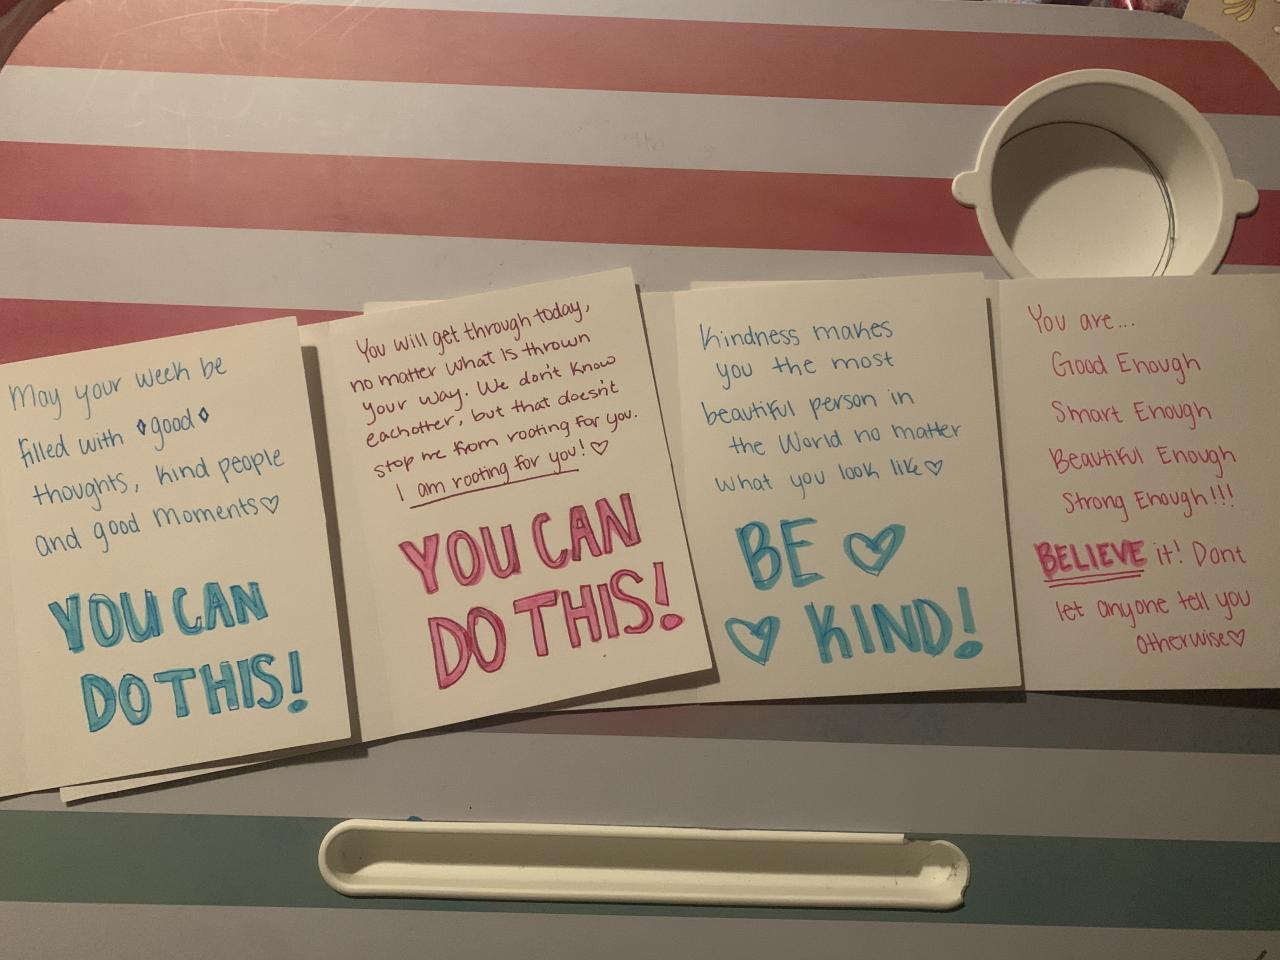 May your week be
filled with ♦good♦
thoughts, kind people
and good moments♡
YOU CAN
DO THIS!
You will get through today,
no matter what is thrown
your way. We don't know
eachotter, but that doesn't
stop me from rooting for you.
I am rooting for you!♡
YOU CAN
DO THIS!
Kindness makes
you the most
beautiful person in
the World no matter
what you look like♡
BE ♡
♡ KIND!
You are...
Good Enough
Smart Enough
Beautiful Enough
Strong Enough!!!
BELIEVE it! Dont
let anyone tell you
otherwise♡